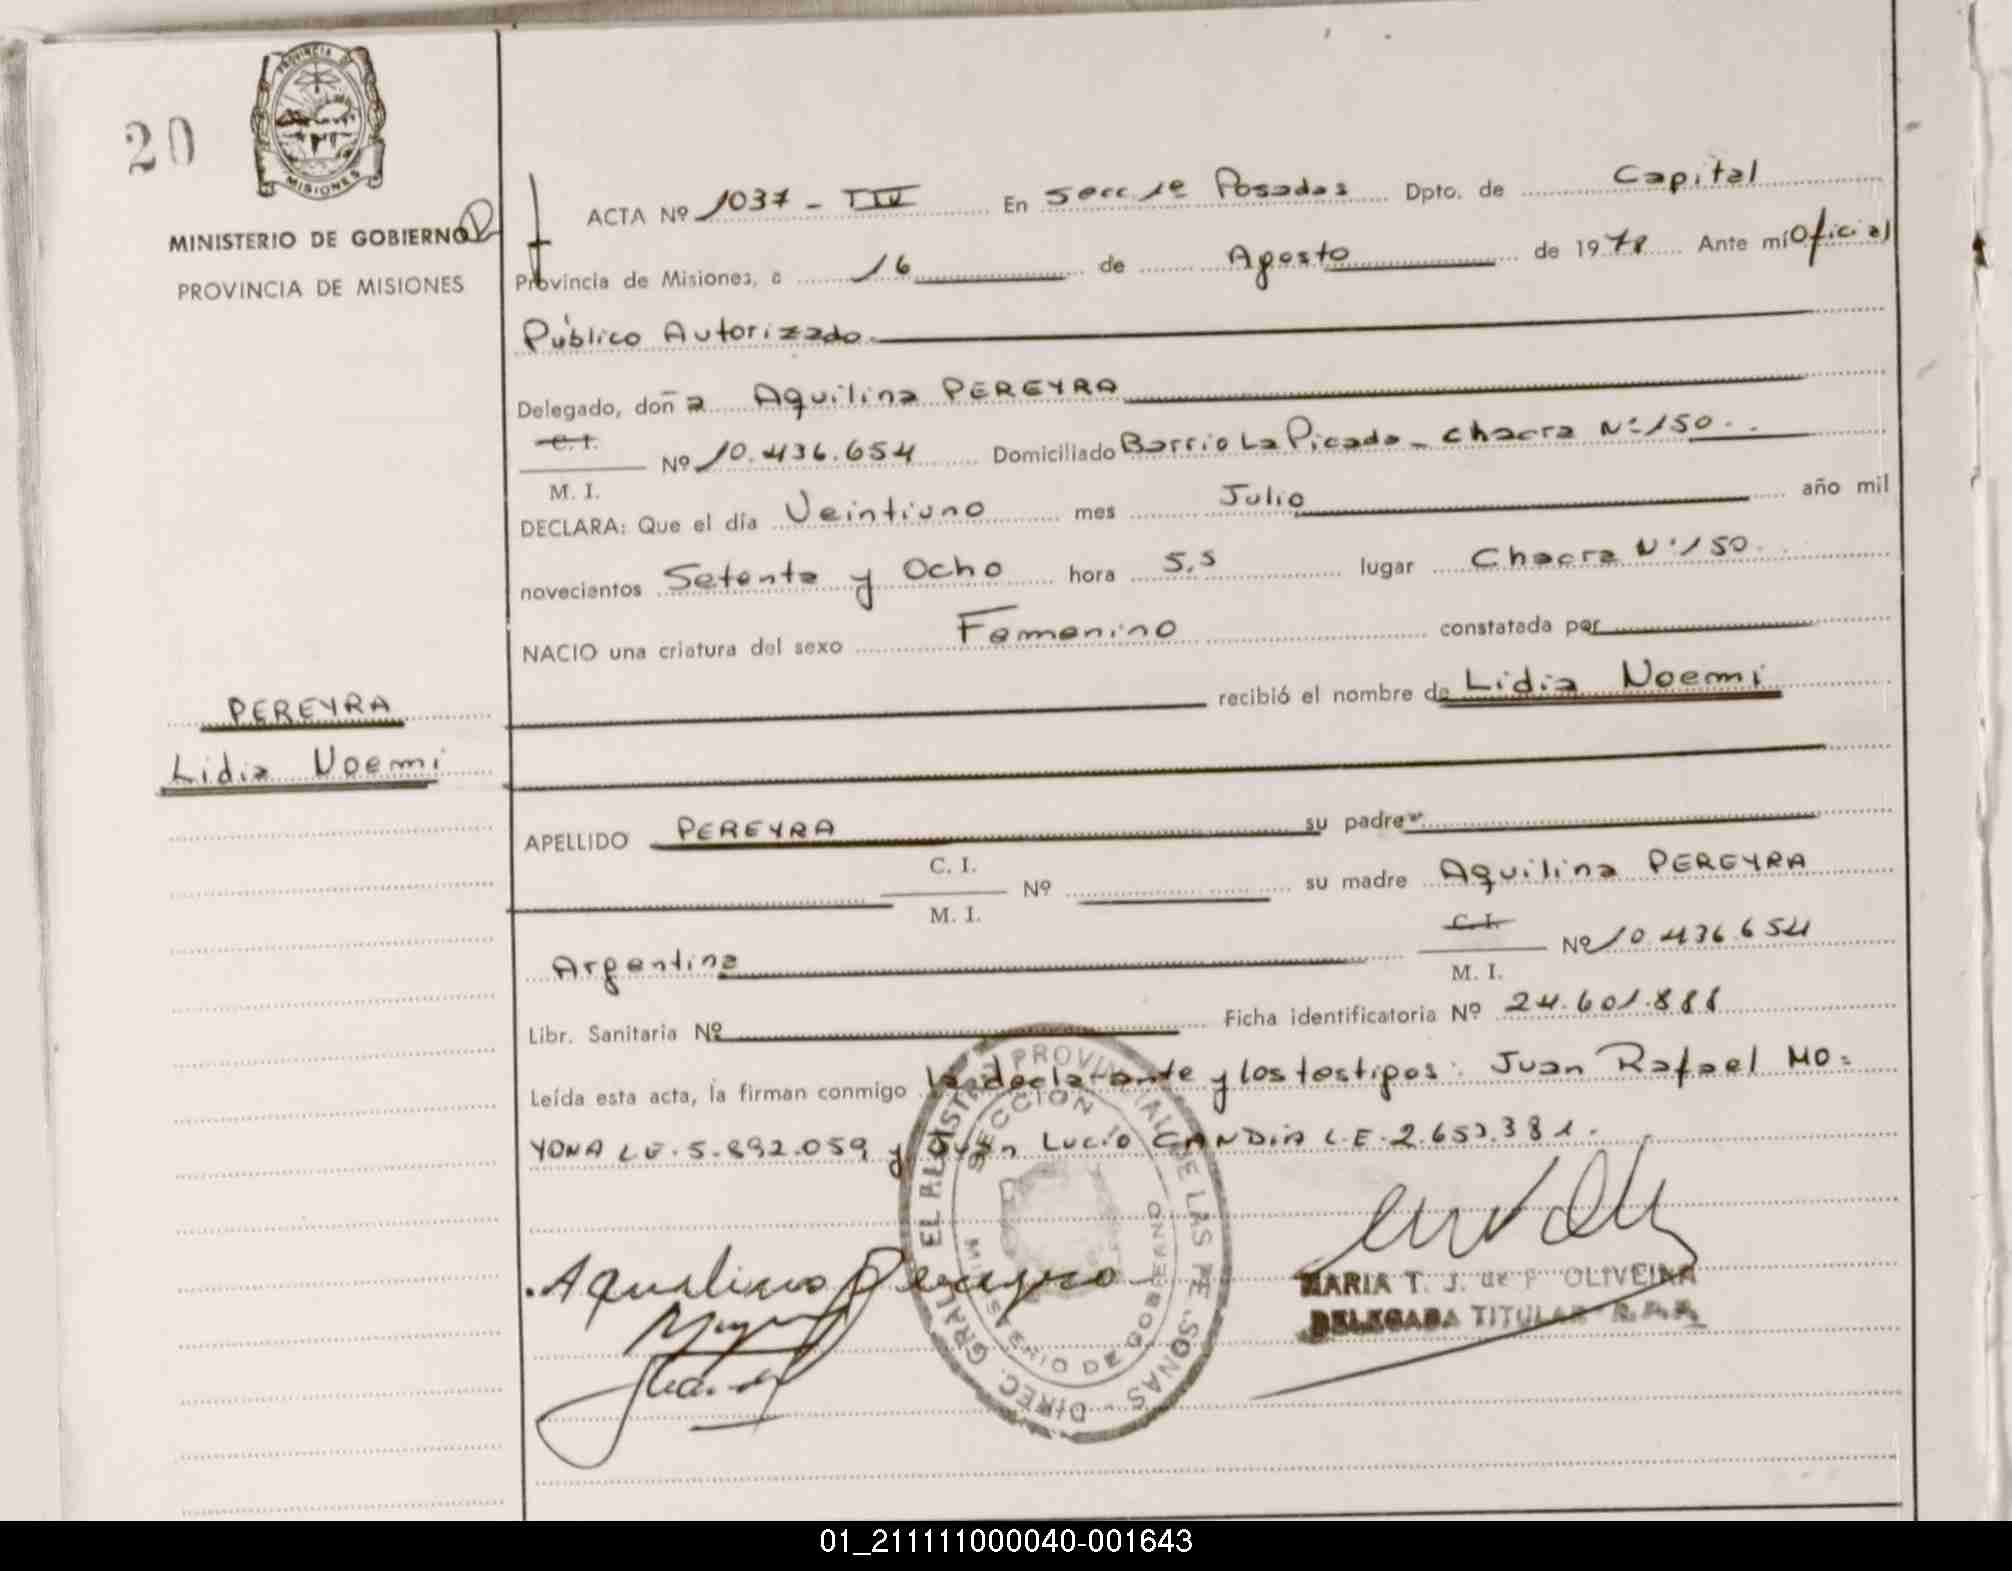 20
PROVINCIA DE
MISIONES
MINISTERIO DE GOBIERNO
PROVINCIA DE MISIONES
ACTA Nº 1037 - TIV En Secc 1e Posadas Dpto. de Capital
Provincia de Misiones, a 16 de Agosto de 1978 Ante mí Oficial
Público Autorizado
Delegado, doña Aquilina PEREYRA
C. I.
M. I.
Nº 10.436.654 Domiciliado Barrio La Picada - Chacra Nº 150.
DECLARA: Que el día Veintiuno mes Julio año mil
novecientos Setenta y Ocho hora 5,5 lugar Chacra Nº 150.
NACIO una criatura del sexo Femenino constatada por
recibió el nombre de Lidia Noemi
PEREYRA
Lidia Noemi
APELLIDO PEREYRA su padre
C. I.
M. I.
Nº su madre Aquilina PEREYRA
Argentina
C. I.
M. I.
Nº 10.436.654
Libr. Sanitaria Nº Ficha identificatoria Nº 24.601.888
Leída esta acta, la firman conmigo la declarante y los testigos: Juan Rafael MO=
YONA L.E. 5.892.059 y Juan Lucio CANDIA L.E. 2.653.381.
DIREC. GRAL. DEL REGISTRO PROVINCIAL DE LAS PERSONAS
SECCION 1
MINISTERIO DE GOBIERNO
Aquilina Pereyra
MARIA T. J. de P OLIVEIRA
DELEGADA TITULAR
01_211111000040-001643